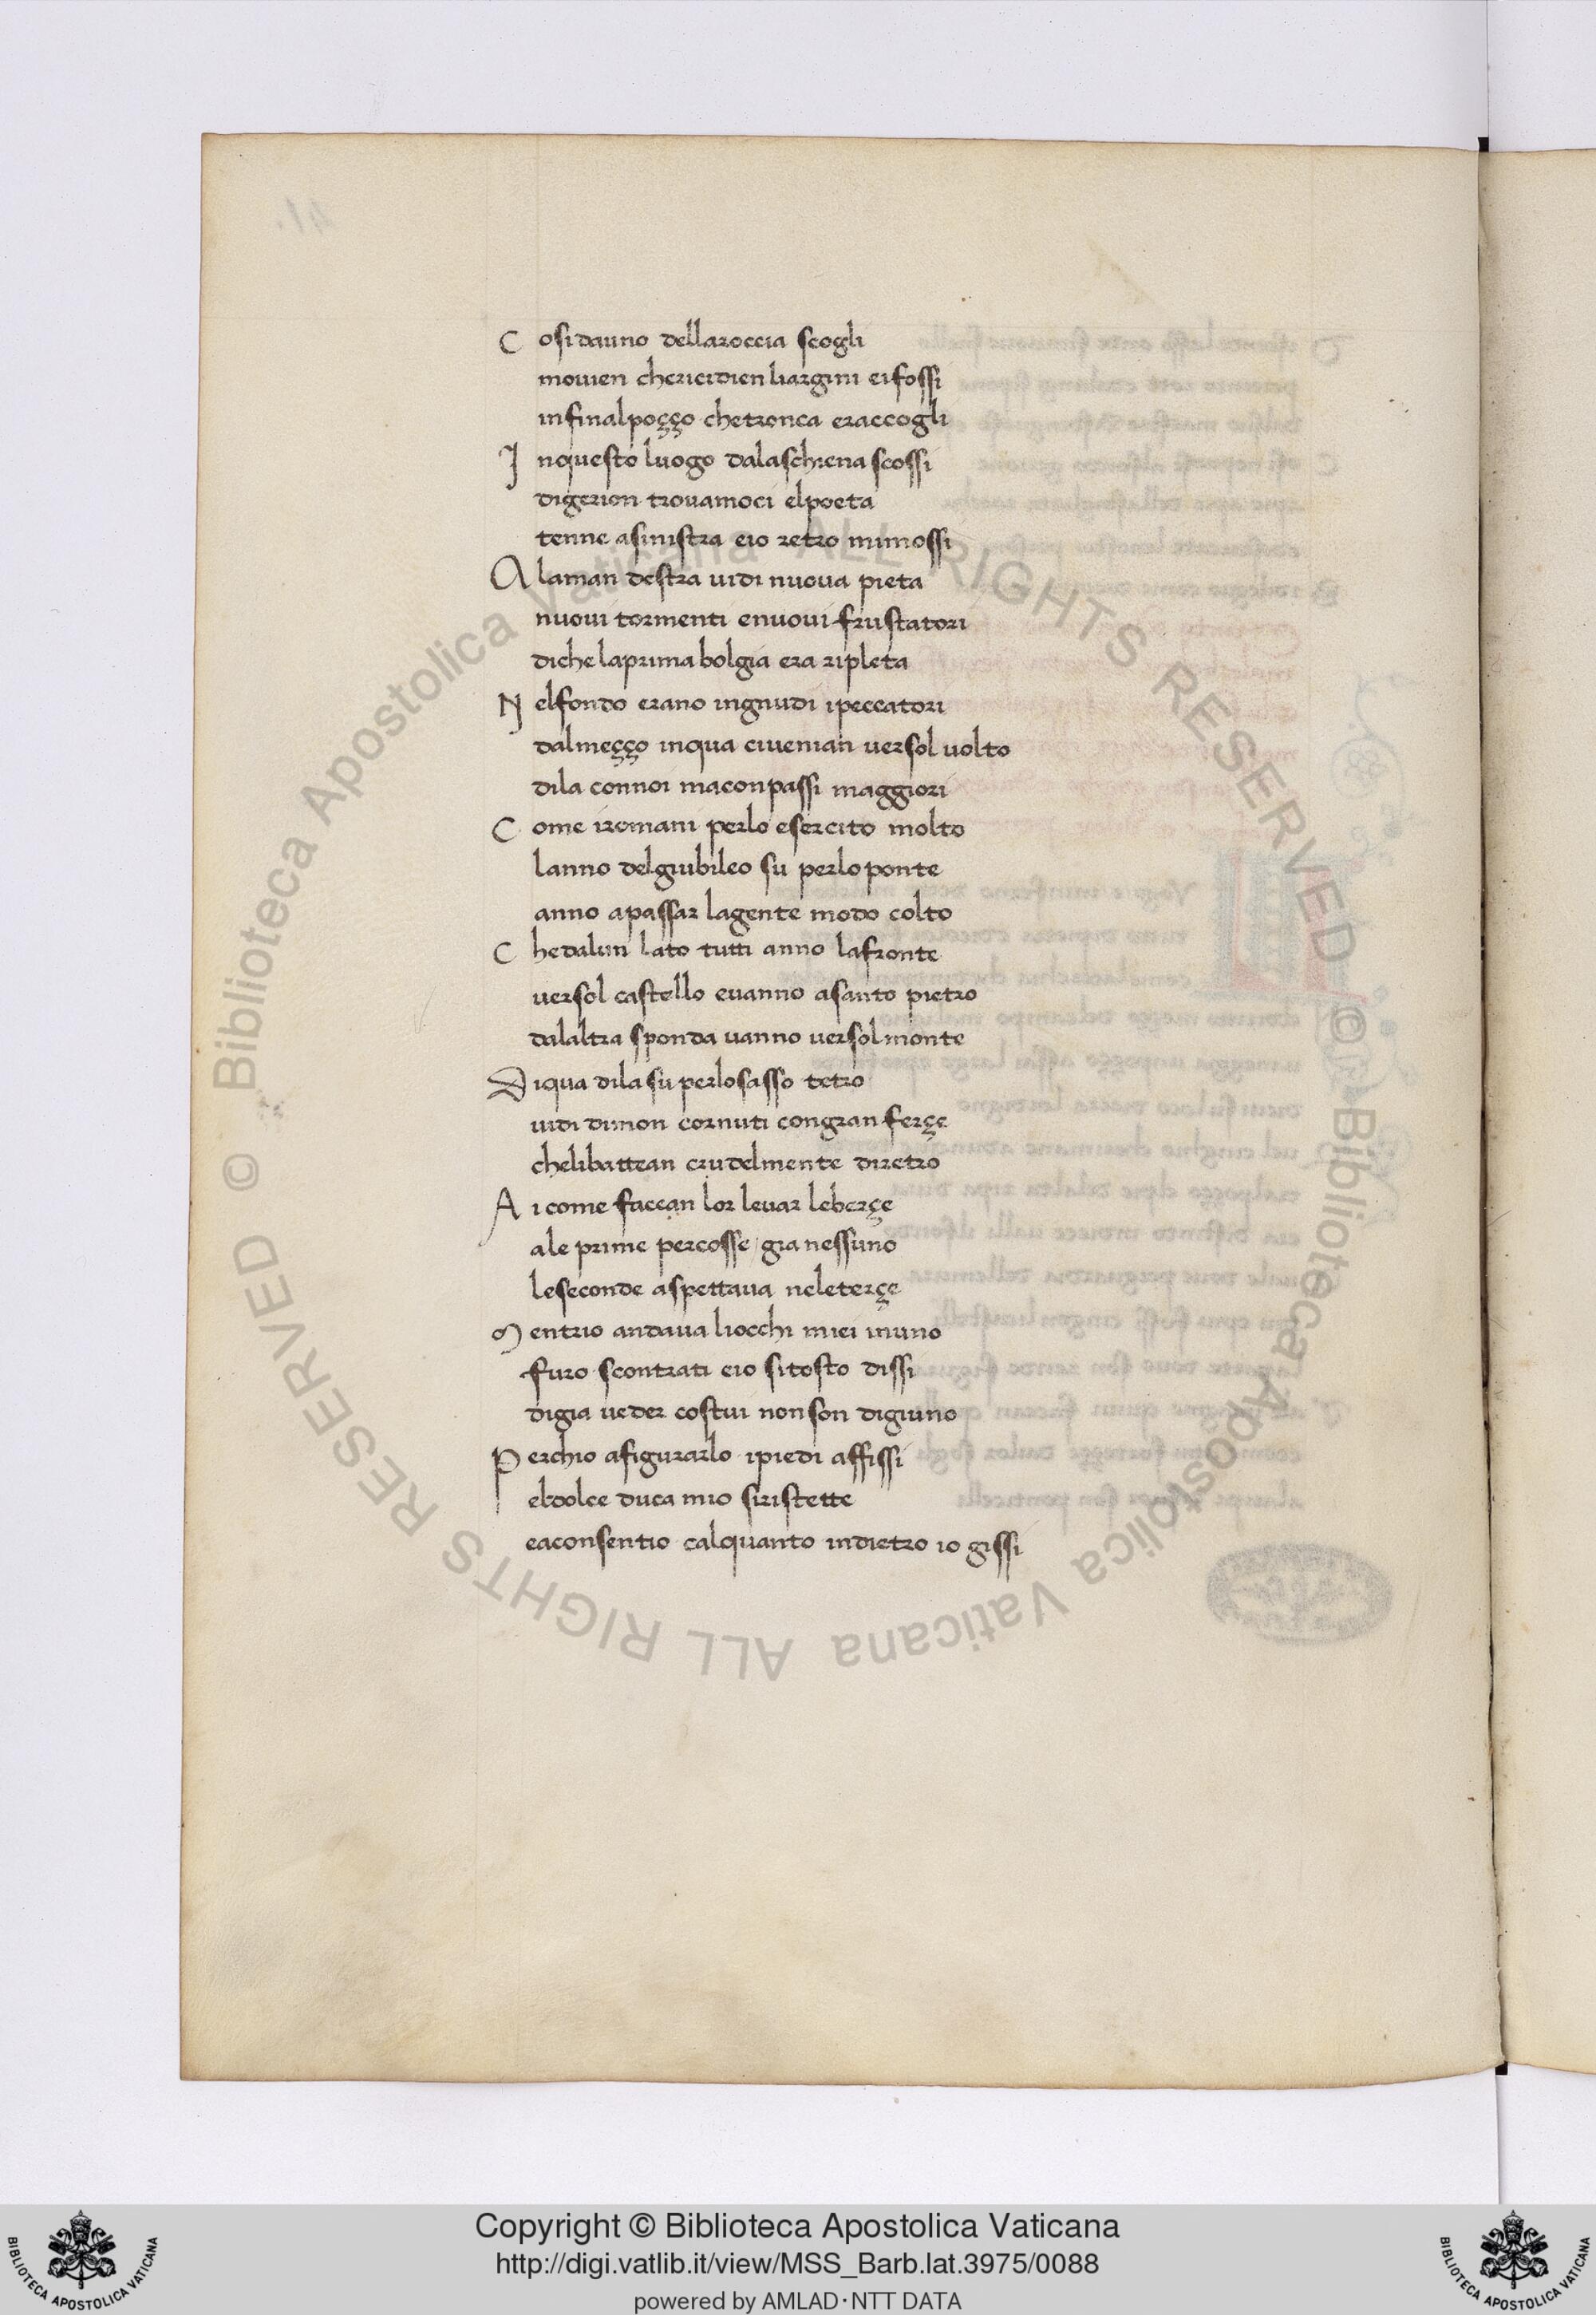 C osi dauno dellaroccia scogli
mouien chericidien liargini eifossi
infinalpoçço chetronca eraccogli
I nquesto luogo dalaschiena scossi
digerion trouamoci elpoeta
tenne asinistra eio retro mimossi
A laman destra uidi nuoua pieta
nuoui tormenti enuoui frustatori
diche laprima bolgia era ripleta
N elfondo erano ingnudi ipeccatori
dalmeçço inqua ciuenian uersol uolto
dila connoi maconpassi maggiori
C ome iromani perlo esercito molto
lanno delgiubileo su perlo ponte
anno apassar lagente modo colto
C hedalun lato tutti anno lafronte
uersol castello euanno asanto pietro
dalaltra sponda uanno uersolmonte
D iqua dila su perlosasso tetro
uidi dimon cornuti congran ferçe
chelibattean crudelmente diretro
A i come faccean lor leuar leberçe
ale prime percosse gia nessuno
leseconde aspettaua neleterçe
M entrio andaua liocchi miei inuno
furo scontrati eio sitosto dissi
digia ueder costui nonson digiuno
P erchio afigurarlo ipiedi affissi
eldolce duca mio siristette
eaconsentio calquanto indietro io gissi
© Biblioteca Apostolica Vaticana ALL RIGHTS RESERVED © Biblioteca Apostolica Vaticana ALL RIGHTS RESERVED
Copyright © Biblioteca Apostolica Vaticana
http://digi.vatlib.it/view/MSS_Barb.lat.3975/0088
powered by AMLAD·NTT DATA
BIBLIOTECA APOSTOLICA VATICANA
BIBLIOTECA APOSTOLICA VATICANA